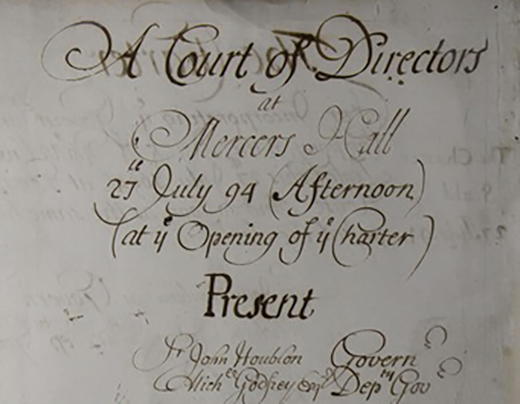 A Court of Directors
at
Mercers Hall
27th July 94 (Afternoon)
(at ye Opening of ye Charter)
Present
Sr John Houblon Governr
Mich Godfrey Esqr Depty Govr